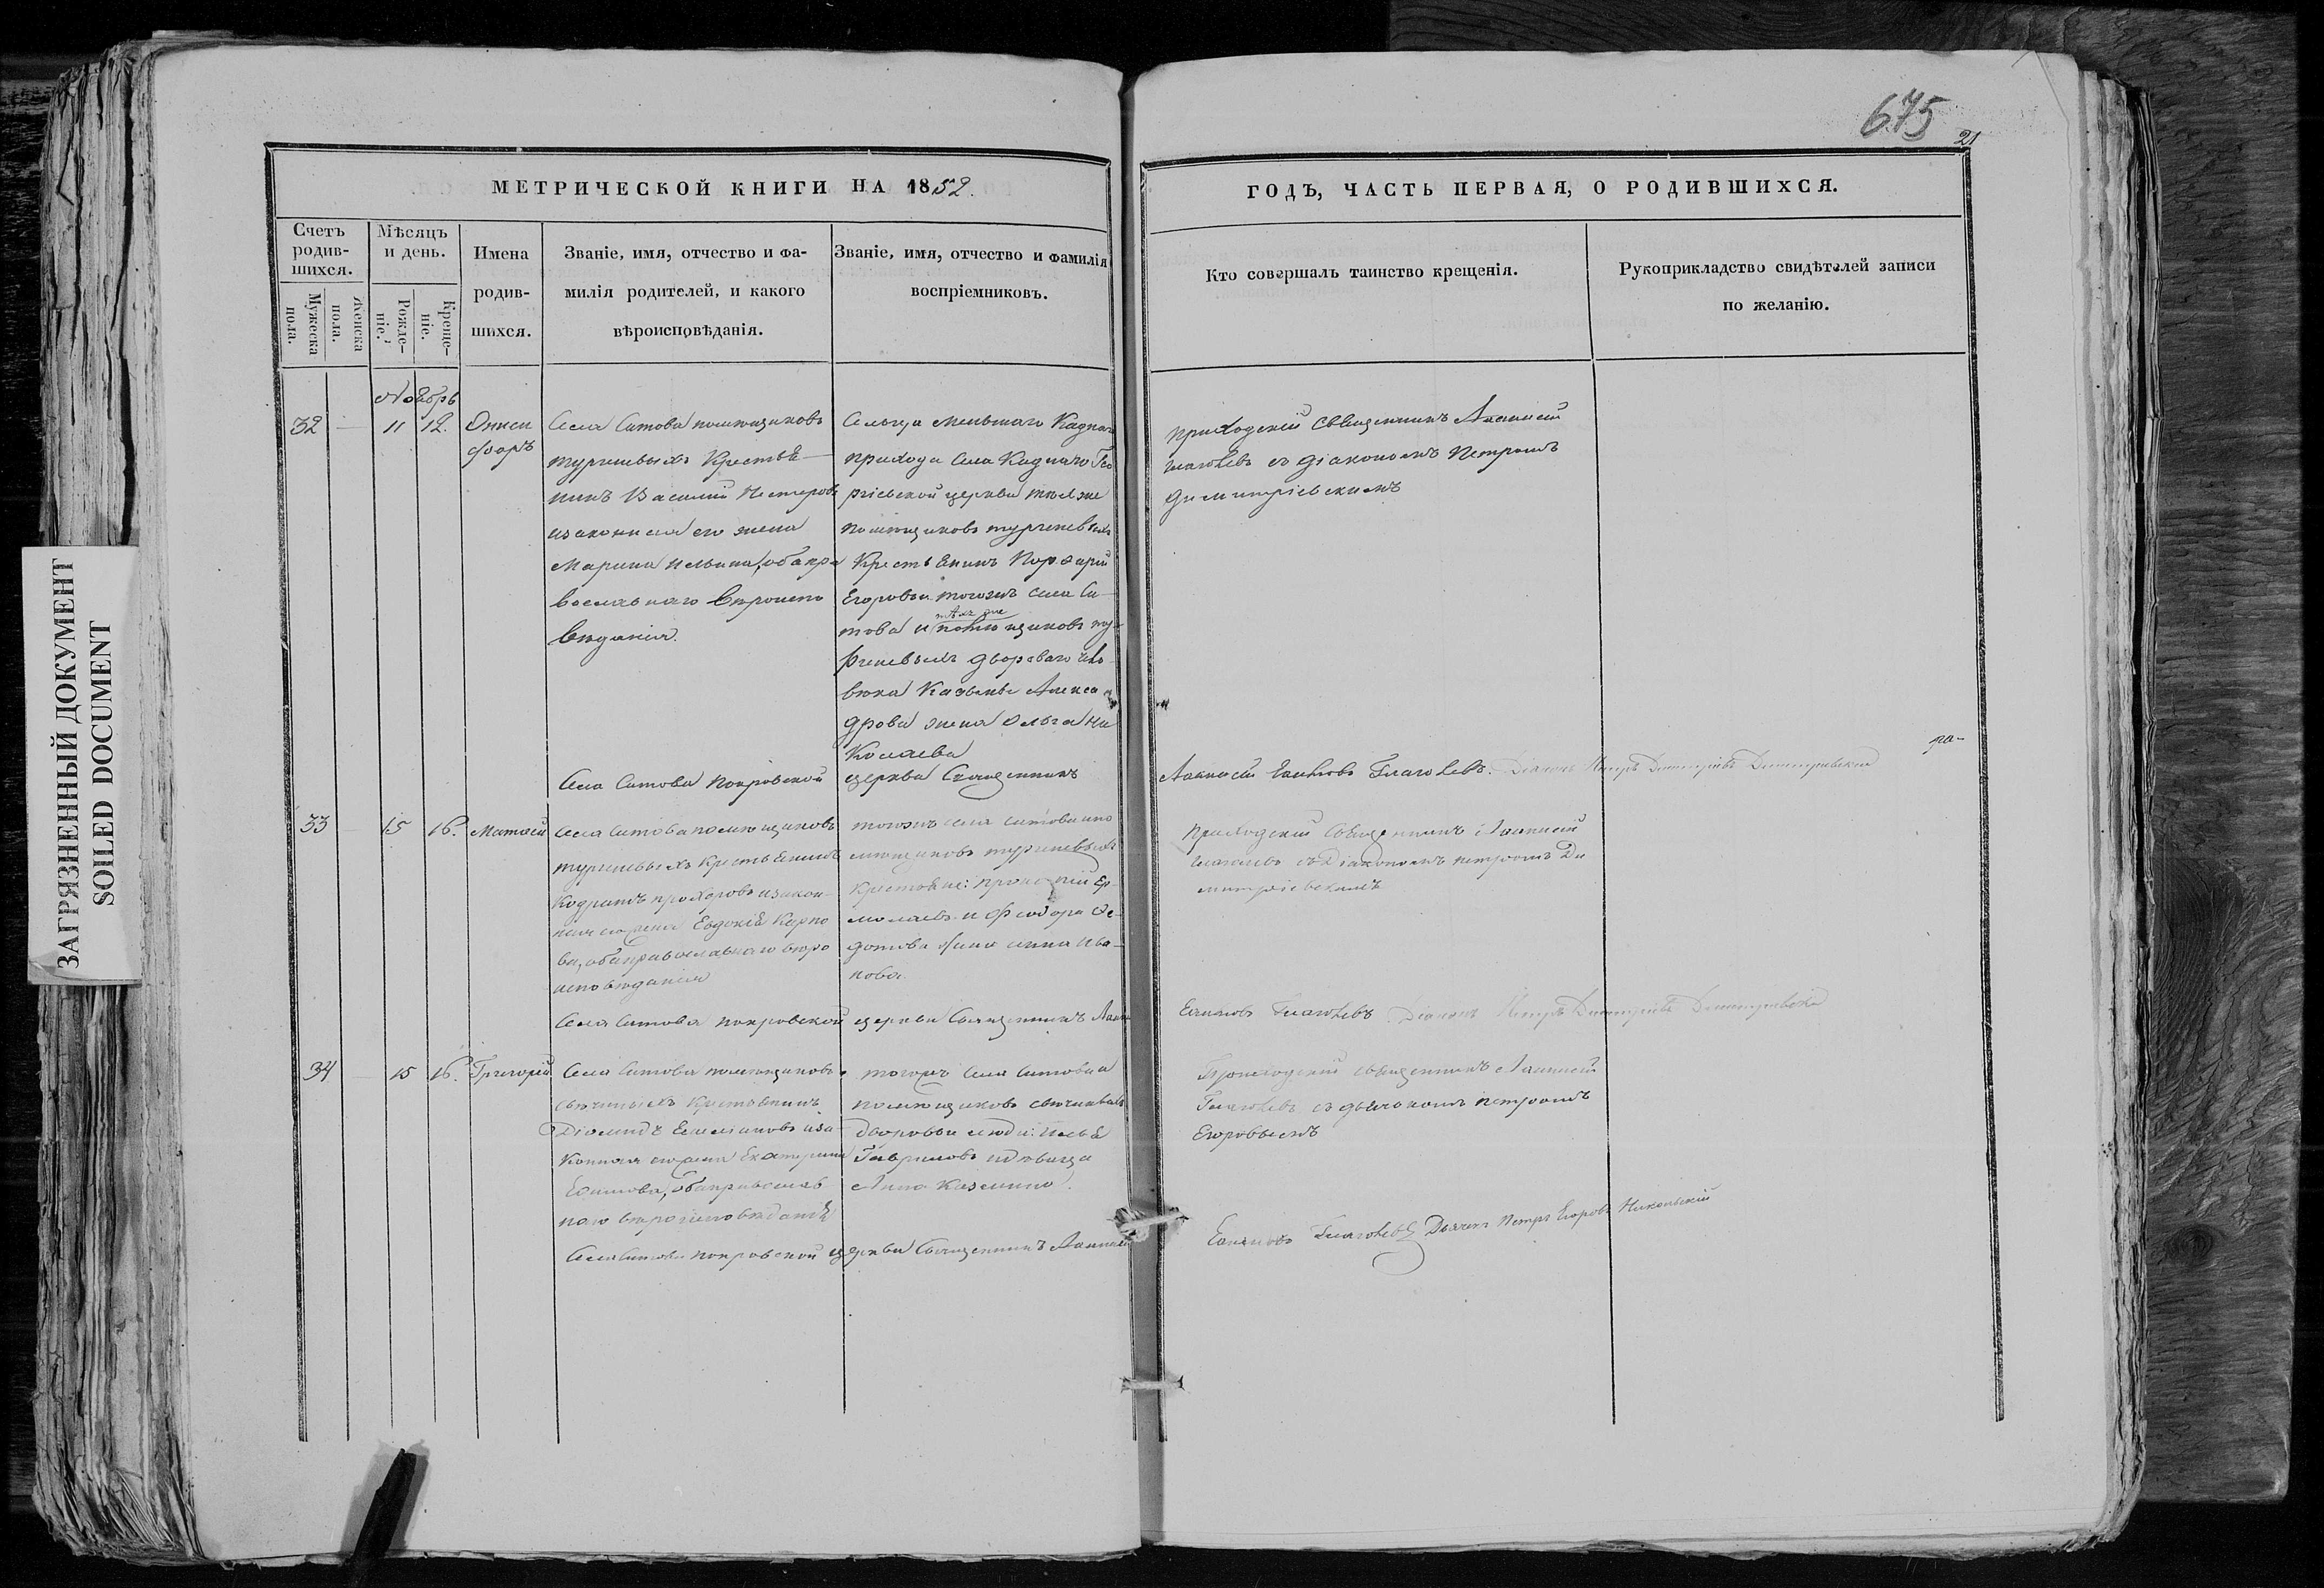 675
21
МЕТРИЧЕСКОЙ КНИГИ НА 1852.
ГОДЪ, ЧАСТЬ ПЕРВАЯ, О РОДИВШИХСЯ.
Счетъ родив-шихся.
Мужеска пола.
Женска пола.
Мѣсяцъ и день.
Рожде-ніе.
Креще-ніе.
Имена родив-шихся.
Званіе, имя, отчество и фа-
милія родителей, и какого
вѣроисповѣданія.
Званіе, имя, отчество и фамилія
воспріемниковъ.
Кто совершалъ таинство крещенія.
Рукоприкладство свидѣтелей записи
по желанію.
Ноябрь
32 — 11 12. Ониси
форъ
Села Ситова помющиковъ
тургневыхъ Крестья
нинъ Василий Нестеровъ
изаконная его жена
Марина Ильина, оба пра
вославнаго вѣроиспо
вѣданія.
Сельца меньшаго Кадного
прихода села Кадного Гео
ргіевской церкви тѣхже
помющиковъ тургеневыхъ
Крестьянинъ Порфирій
Егоровъ и тогожъ села Си
това и тѣхъ же помющиковъ ту
ргеневыхъ двороваго чело
вѣка Казьмы Алекса
дрова жена Ольга Ни
колаева
приходскій Священникъ Аѳанасій
Глаголевъ съ діакономъ Петромъ
Димитріевскимъ
Села Ситова Покровской церкви Священникъ
Аѳанасій Глаголевъ. Діаконъ Петръ Димитріевъ Димитріевский
33 — 15 16. Матѳей
Села Ситова помющиковъ
тургневыхъ Крестьянинъ
Кодратъ прохоровъ изакон
ная его жена Евдокія Карпо
ва, оба православнаго вѣро
исповѣданія
тогожъ села ситова и по
мющиковъ тургеневыхъ
Крестьяне: Ер
молаевъ и Феодора Фе
дотова жена анна Ива
нова.
Приходскій Священникъ Аѳанасій
Глаголевъ съ Діакономъ петромъ Ди
митріевскимъ
Села Ситова покровской церкви Священникъ Аѳана
Глаголевъ Діаконъ Петръ Димитріевъ Димитріевский
34 — 15 16. Григорій
Села Ситова помющиковъ
Крестьянинъ
Діомидъ Емельяновъ иза
конная его жена Екатерина
Ефимова, оба православ
наго вѣроисповѣданія
тогожъ Села Ситова и
помющиковъ
дворовые люди: Илья
Гавриловъ и дѣвица
Анна Казмина.
Приходскій священникъ Аѳанасій
Глаголевъ съ дьячкомъ петромъ
Егоровымъ
Села Ситова покровской церкви Священникъ Аѳанасій
Глаголевъ Дьячекъ Петръ Егоровъ Никольскій
ЗАГРЯЗНЕННЫЙ ДОКУМЕНТ
SOILED DOCUMENT